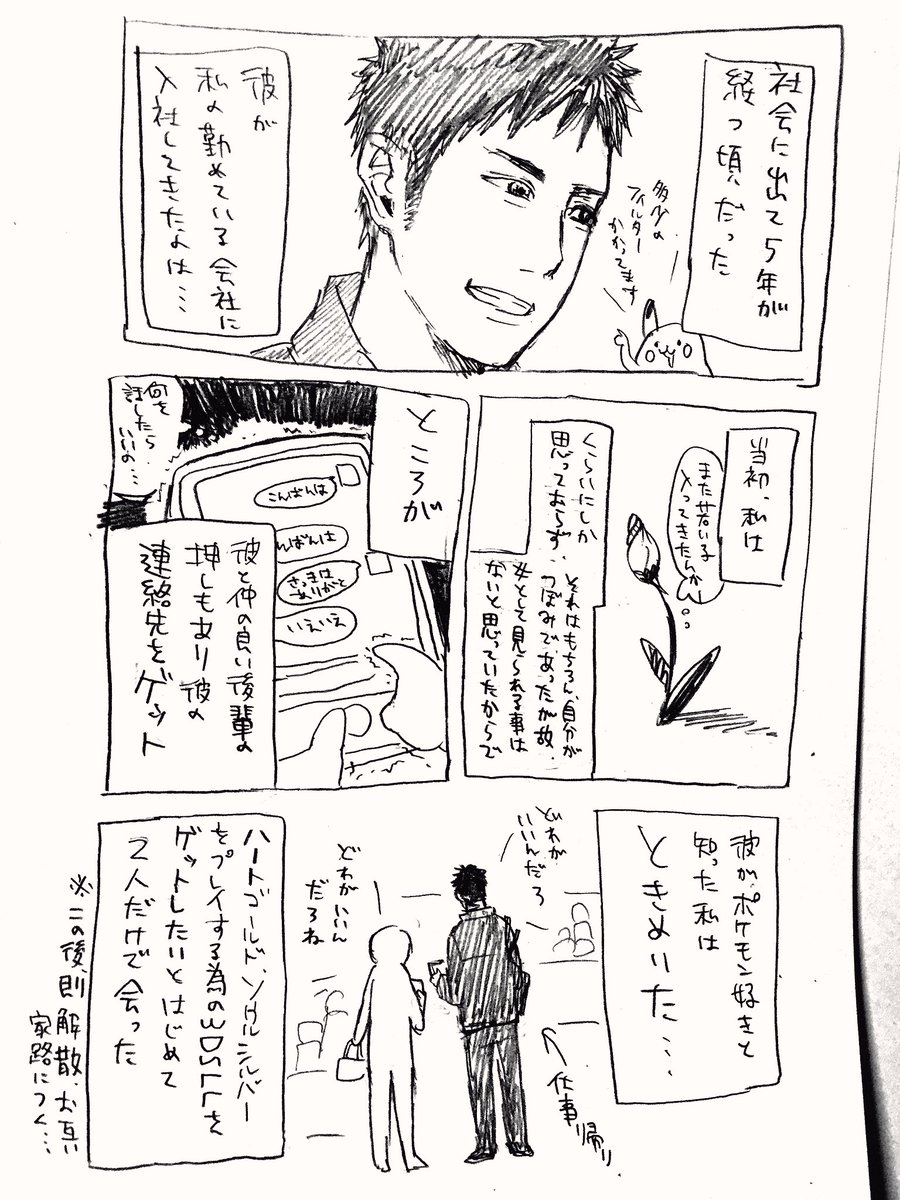 社会に出て5年が
経つ頃だった
多少の
フィルター
かかってます
彼が
私の勤めている会社に
入社してきたのは…
当初、私は
また若い子
入ってきたんかん
くらいにしか
思っておらず、
それはもちろん、自分が
つぼみであったが故、
女として見られる事は
ないと思っていたからで
ところが
こんばんは
んばんは
さっきは
ありがと
いえいえ
何を
話したら
いいの…
彼と仲の良い後輩の
押しもあり彼の
連絡先をゲット
彼がポケモン好きと
知った私は
ときめいた…
どれが
いいんだろ
どれがいいん
だろね
仕事帰り
ハートゴールド、ソウルシルバー
をプレイする為の3DSLLを
ゲットしたいとはじめて
2人だけで会った
※この後、則解散、お互い
家路につく…